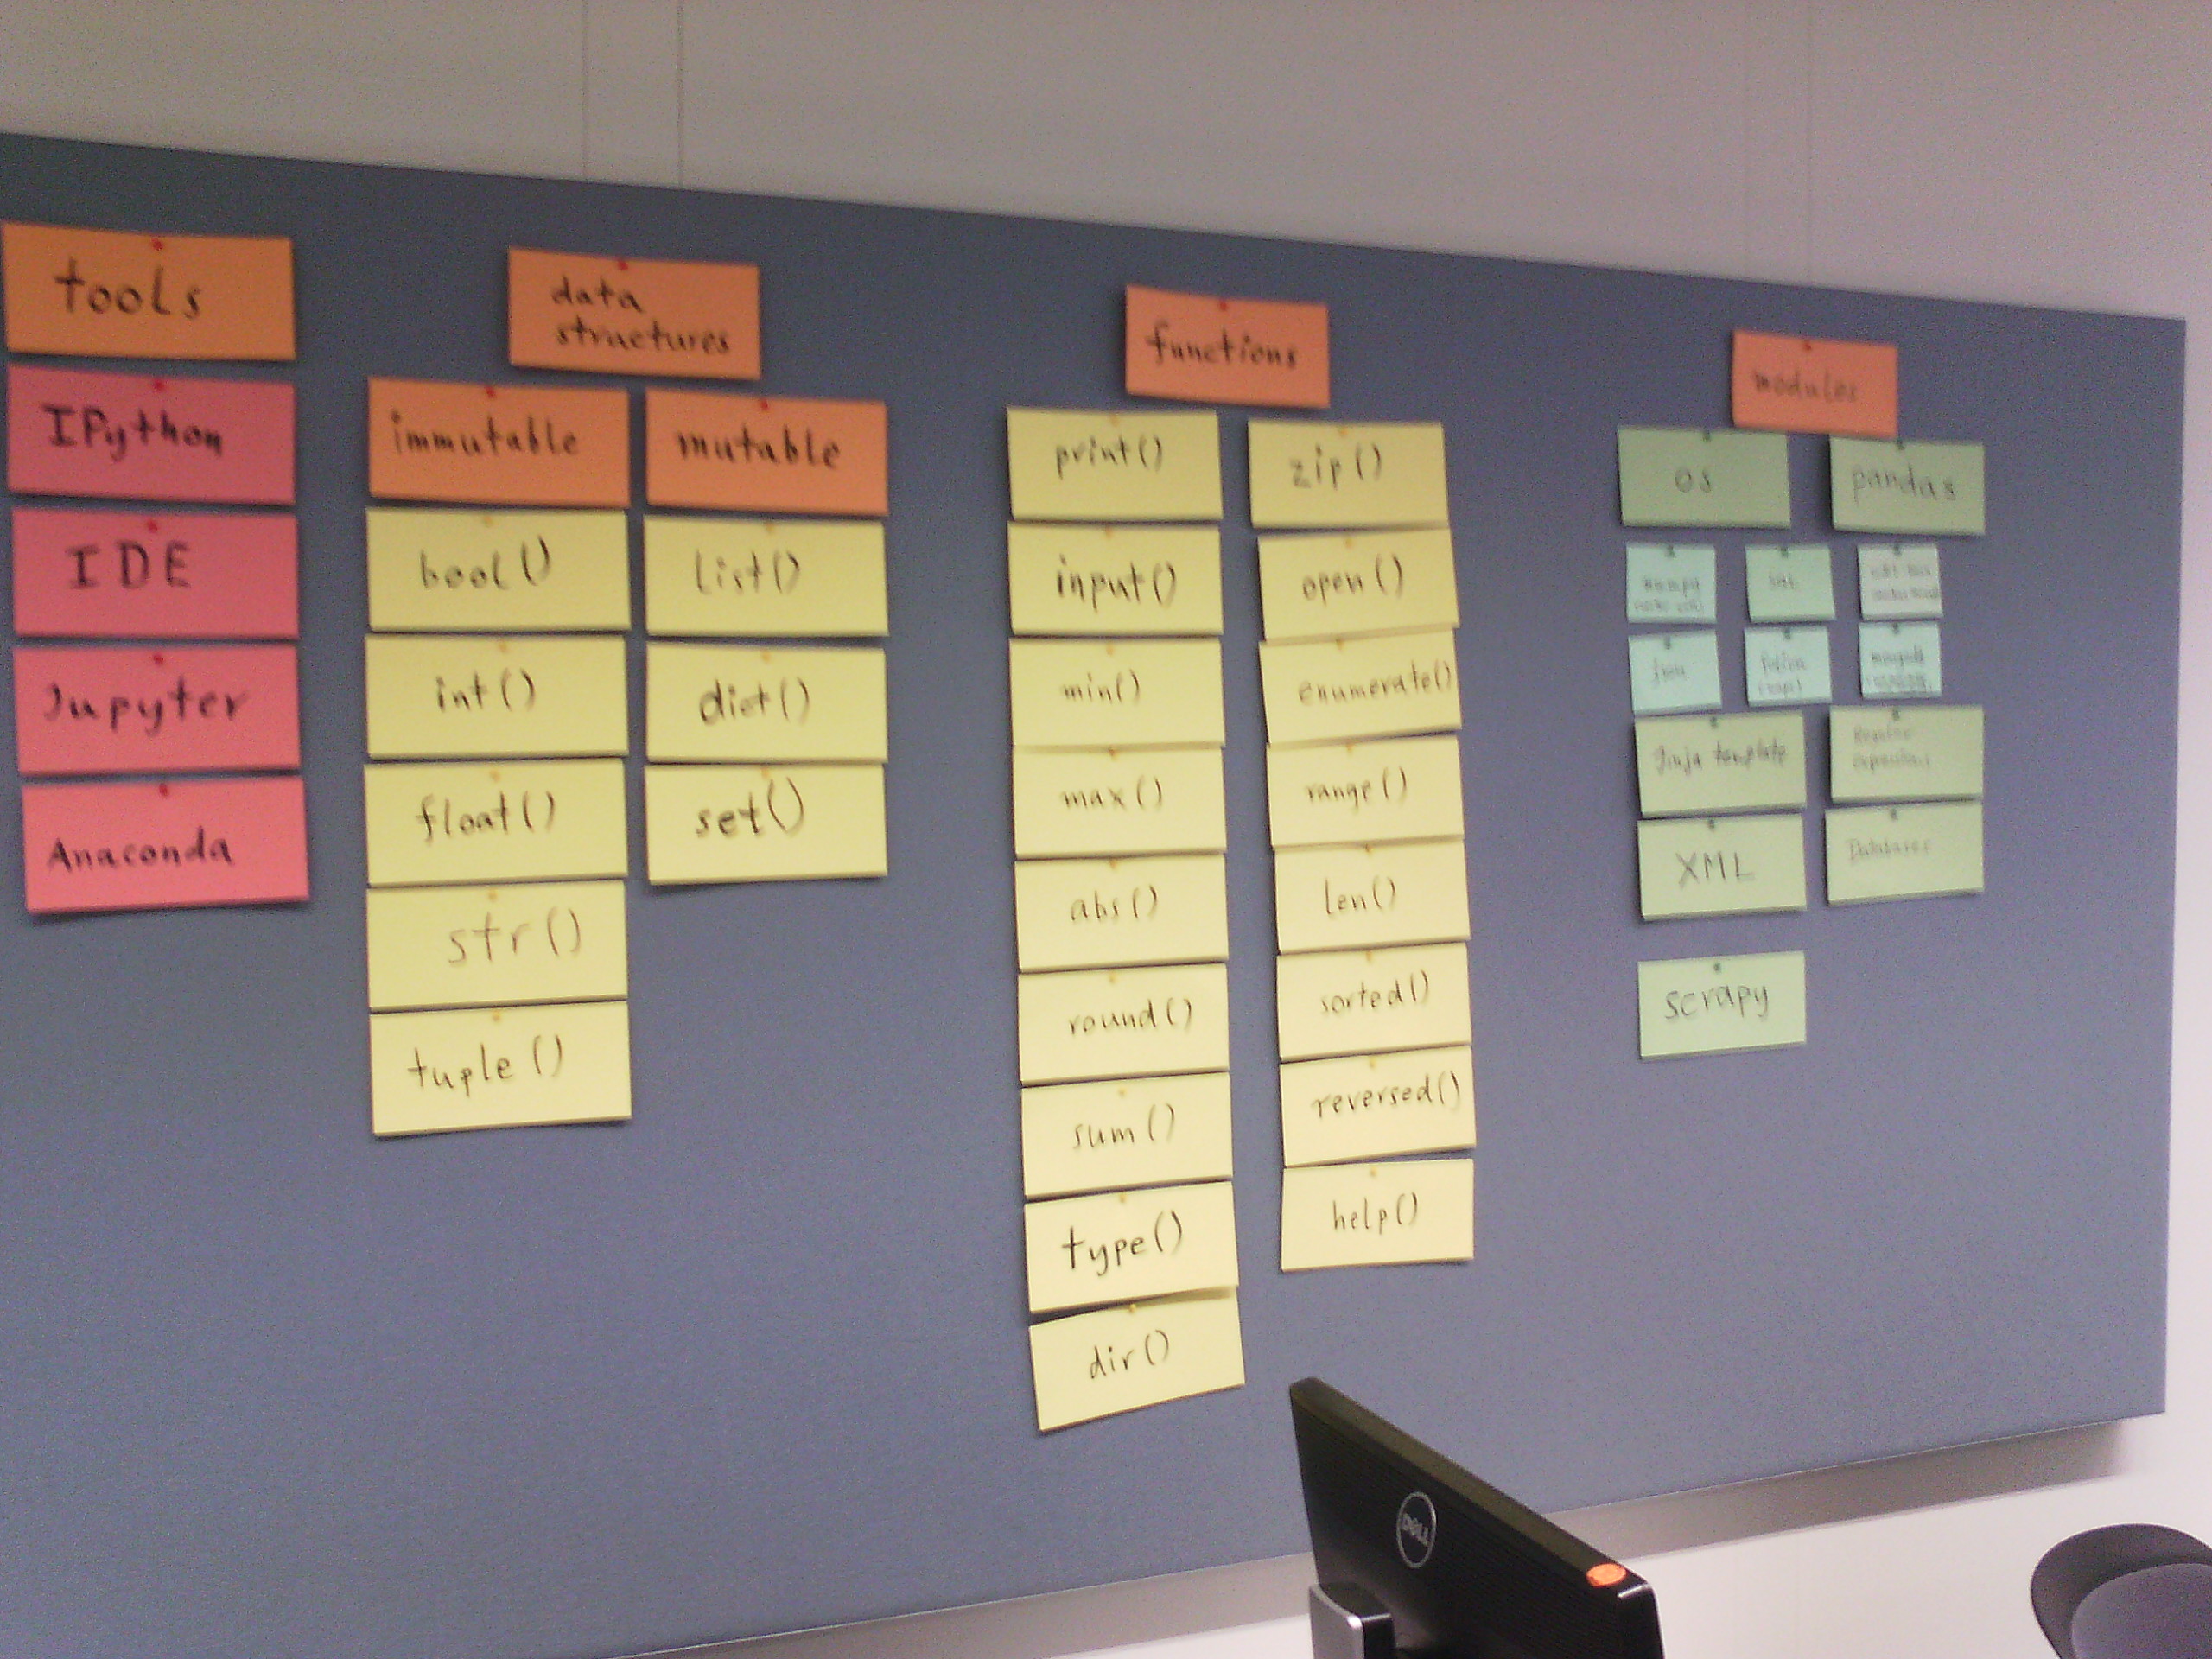 tools
IPython
IDE
Jupyter
Anaconda
data
structures
immutable
bool()
int()
float()
str()
tuple()
mutable
list()
dict()
set()
functions
print()
input()
min()
max()
abs()
round()
sum()
type()
dir()
zip()
open()
enumerate()
range()
len()
sorted()
reversed()
help()
modules
os
pandas
json
Jinja template
Regular
Expressions
XML
Databases
scrapy
DELL